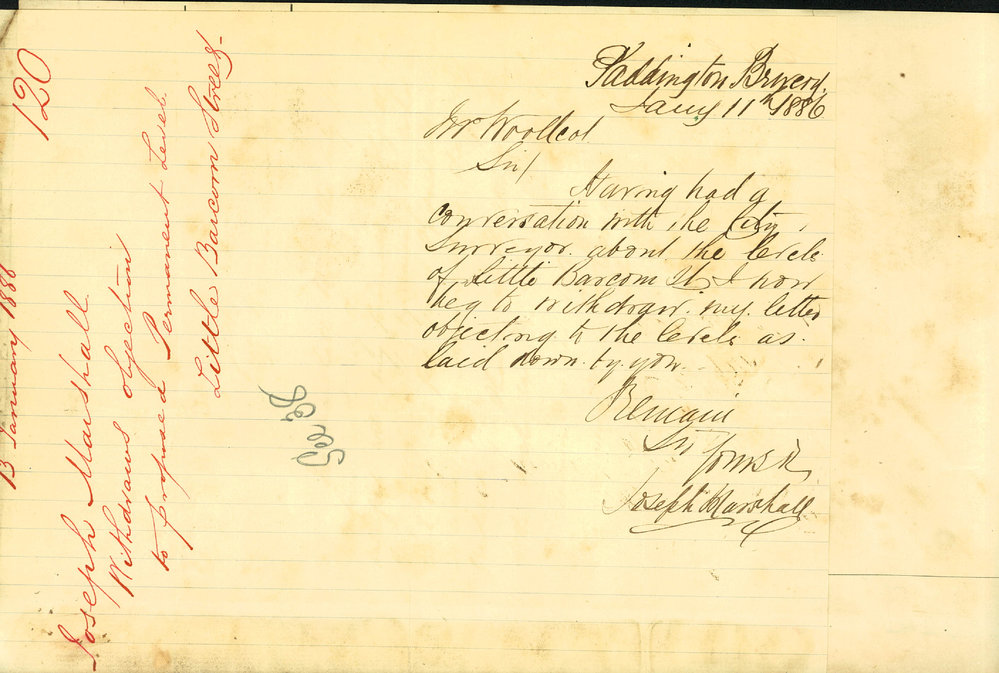 Paddington Brewery.
Jany 11th 1886
Mr Woollcot
Sir/
Having had a
conversation with the City
Surveyor about the levels
of Little Barcom St, I now
beg to withdraw my letter
objecting to the levels as
laid down by you.
Remain
Sir
Yours &c
Joseph Marshall
120
13 January 1886
Joseph Marshall
Withdraws objection
to proposed Permanent Level
Little Barcom Street